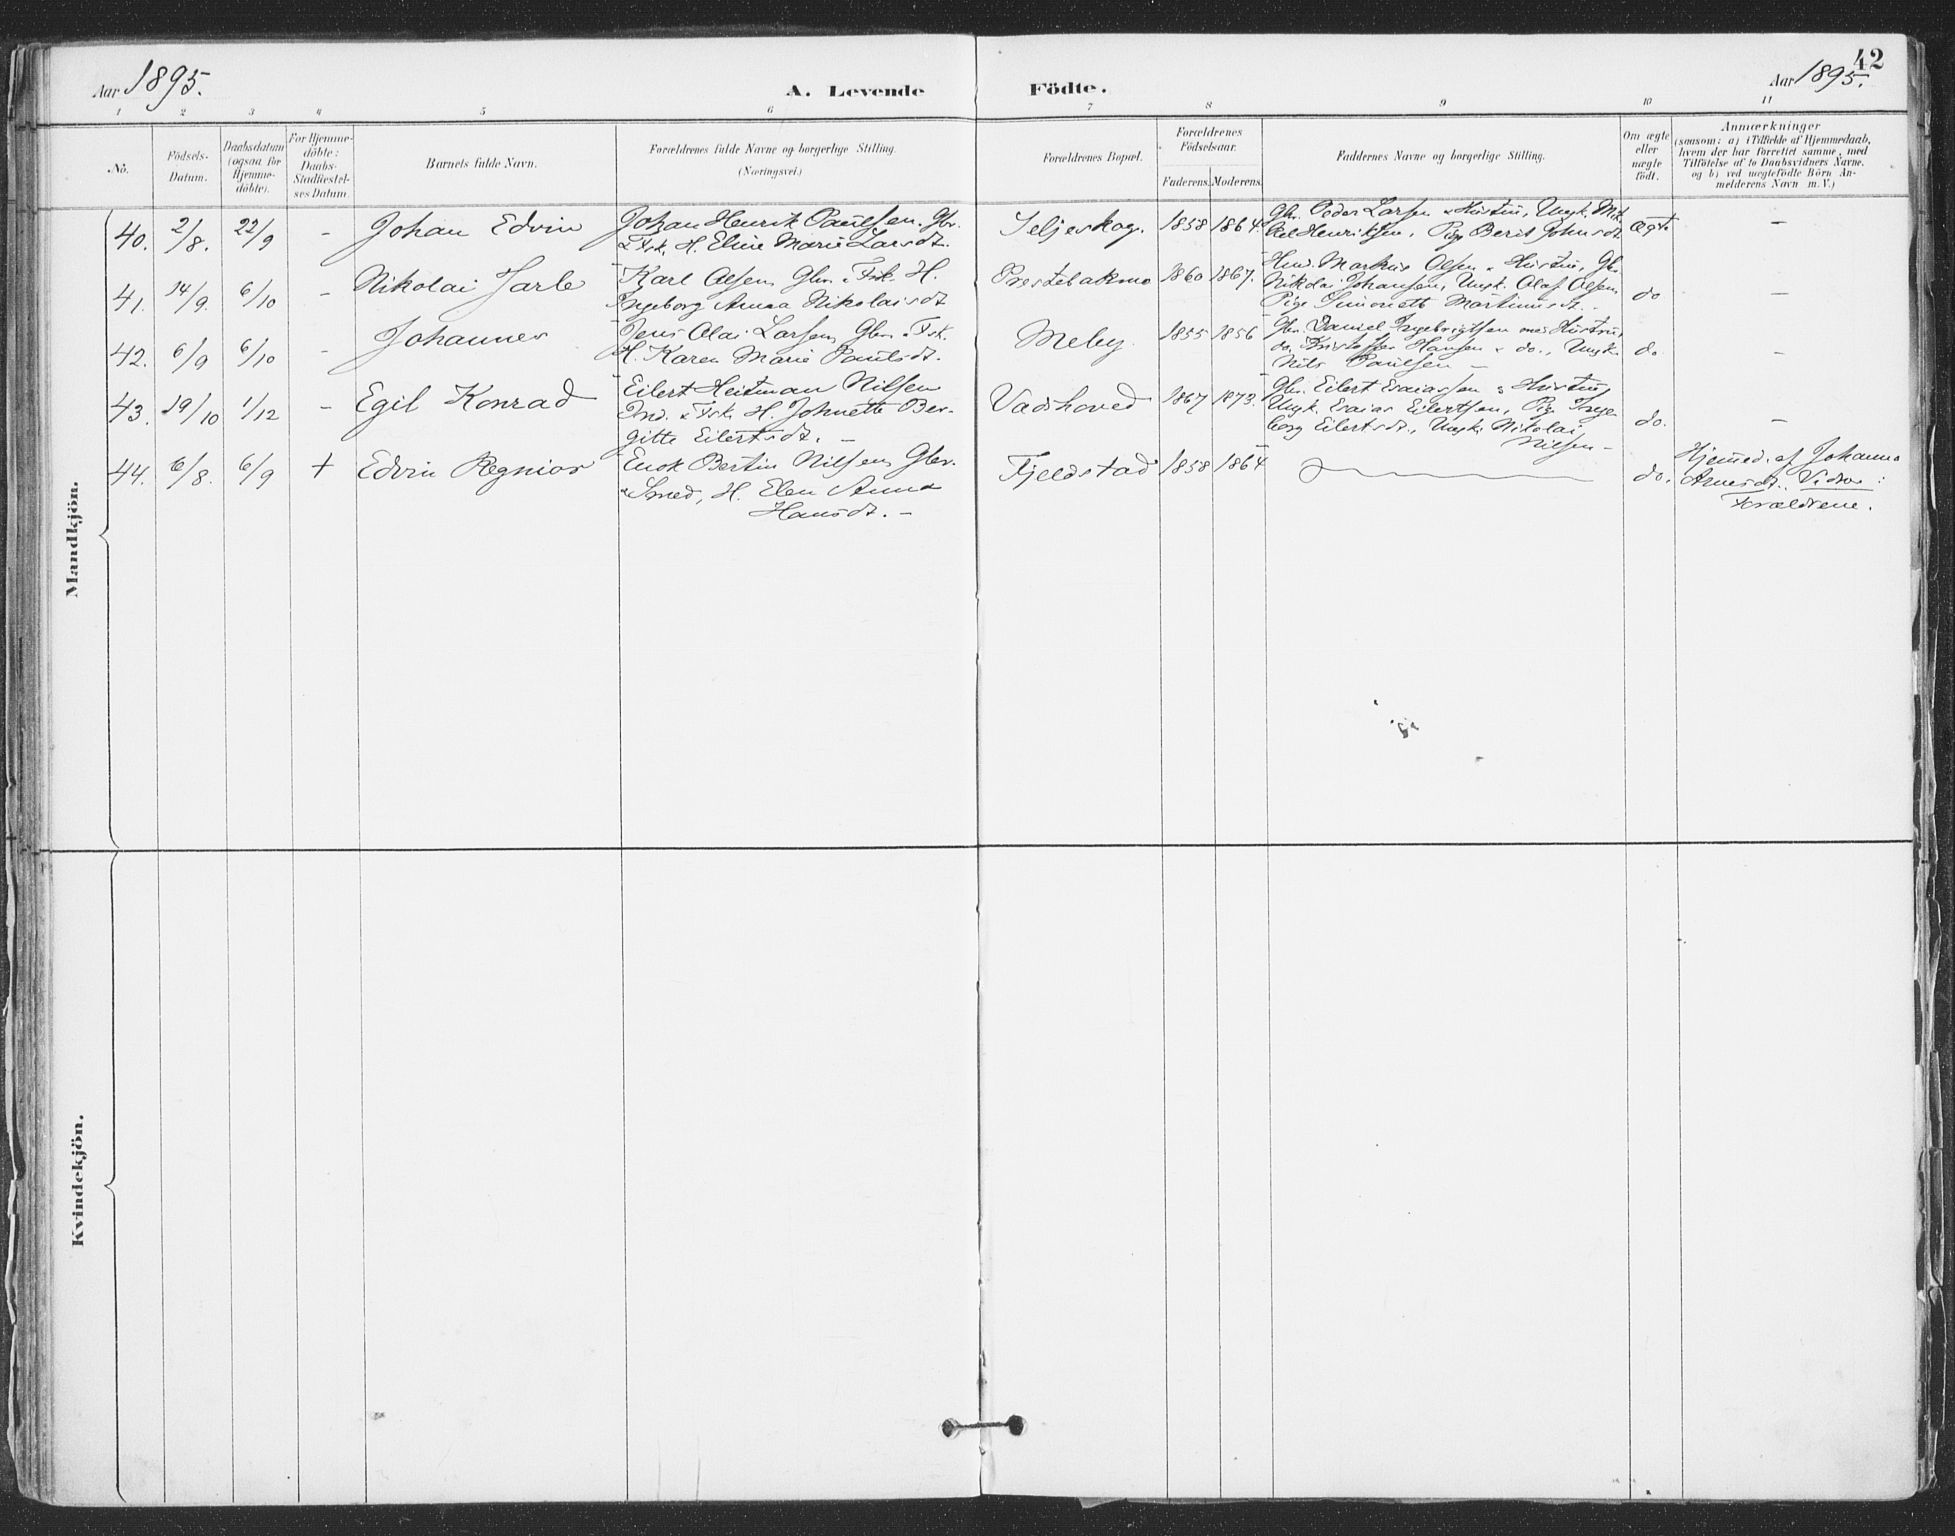 42
Aar 1895.
A. Levende Födte.
Aar 1895.
1 2 3 4 5 6 7 8 9 10 11
No.
Födsels-
Datum.
Daabsdatum
(ogsaa for
Hjemme-
döbte).
For Hjemme-
döbte:
Daabs-
Stadfæstel-
ses Datum.
Barnets fulde Navn.
Forældrenes fulde Navne og borgerlige Stilling.
(Næringsvei.)
Forældrenes Bopæl.
Forældrenes
Födselsaar.
Faderens. Moderens.
Faddernes Navne og borgerlige Stilling.
Om ægte
eller
uægte
födt.
Anmærkninger
(saasom: a) i Tilfælde af Hjemmedaab,
hvem der har forrettet samme, med
Tilföielse af to Daabsvidners Navne,
og b) ved uægtefödte Börn An-
melderens Navn m. V.)
Mandkjön.
40. 2/8. 22/9 - Johan Edvin
Johan Henrik Paulsen. Gbr.
& Fsk, H. Eline Marie Larsdt.
Seljeskog. 1858 1864.
Gbr. Peder Larsen & Hustru, Ungk. Mik-
kel Henriksen, Pige Berit Johnsdt.
Ægte -
41. 14/9. 6/10 - Nikolai Jarle
Karl Olsen, Gbr. & Fsk. H.
Ingeborg Anna Nikolaisdt.
Prestebakmo 1860 1867.
Hmd. Markus Olsen & Hustru, Gbr.
Nikolai Johansen, Ungk. Olaf Olsen,
Pige Simonette Martinusdt.
do -
42. 6/9 6/10 - Johannes
Jens Olai Larsen, Gbr. & Fsk.
H. Karen Marie Paulsdt.
Meby. 1855 1856
Gbr. Daniel Ingebrigtsen med Hustru,
do. Kristoffer Hansen & do., Ungk.
Nils Paulsen -
do -
43. 19/10 1/12 - Egil Konrad
Eilert Heitman Nilsen
Ind. & Fsk. H. Johnette Ber-
gitte Eilertsdt. -
Vadshoved 1867 1873.
Gbr. Eilert Esaiassen & Hustru,
Ungk. Esaias Eilertsen, Pige Inge-
borg Eilertsdt., Ungk. Nikolai
Nilsen -
do. -
44. 6/8. 6/9 + Edvin Regnior
Enok Bertin Nilsen, Gbr.
& Smed, H. Elen Anna
Hansdt. -
Fjeldstad 1858 1864
do.
Hjemmed. af Johanna
Arnesdt. Vidner:
Forældrene.
Kvindekjön.